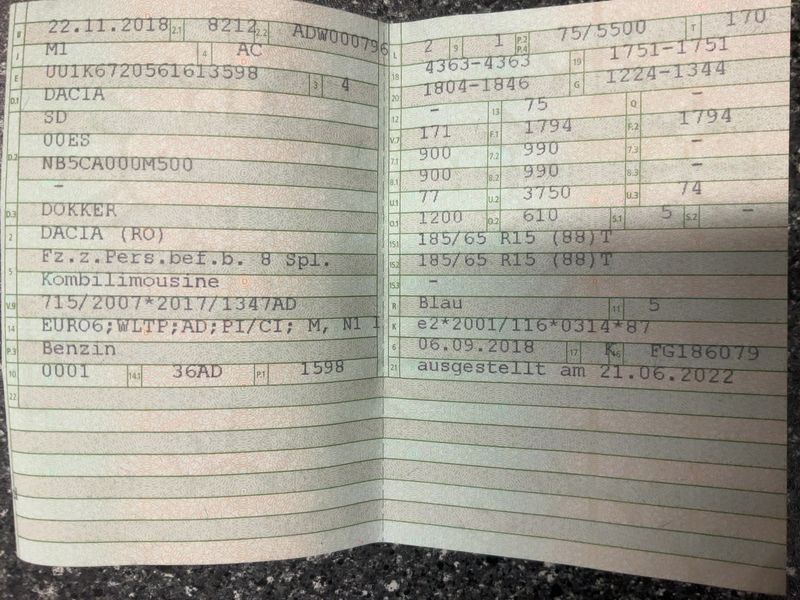 B 22.11.2018 2.1 8212 2.2 ADW000796
J M1 4 AC
E UU1K6720561613598 3 4
D.1 DACIA
SD
00ES
D.2 NB5CA000M500
-
D.3 DOKKER
2 DACIA (RO)
Fz.z.Pers.bef.b. 8 Spl.
5 Kombilimousine
V.9 715/2007*2017/1347AD
14 EURO6;WLTP;AD;PI/CI; M, N1 I
P.3 Benzin
10 0001 14.1 36AD P.1 1598
22
L 2 9 1 P.2 P.4 75/5500 T 170
18 4363-4363 19 1751-1751
20 1804-1846 G 1224-1344
12 - 13 75 Q -
V.7 171 F.1 1794 F.2 1794
7.1 900 7.2 990 7.3 -
8.1 900 8.2 990 8.3 -
U.1 77 U.2 3750 U.3 74
O.1 1200 O.2 610 S.1 5 S.2 -
15.1 185/65 R15 (88)T
15.2 185/65 R15 (88)T
15.3 -
R Blau 11 5
K e2*2001/116*0314*87
6 06.09.2018 17 K 16 FG186079
21 ausgestellt am 21.06.2022